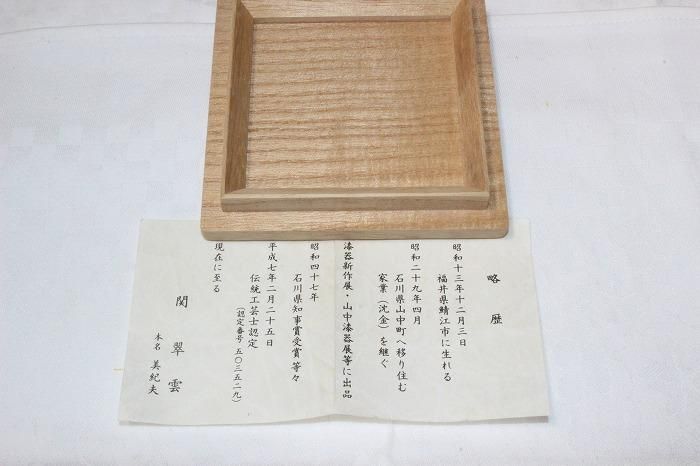 略歴
昭和十三年十二月三日
福井県鯖江市に生れる
昭和二十九年四月
石川県山中町へ移り住む
家業（沈金）を継ぐ
漆器新作展・山中漆器展等に出品
昭和四十七年
石川県知事賞受賞等々
平成七年二月二十五日
伝統工芸士認定
（認定番号 五〇三五二九）
現在に至る
関翠雲
本名 美紀夫